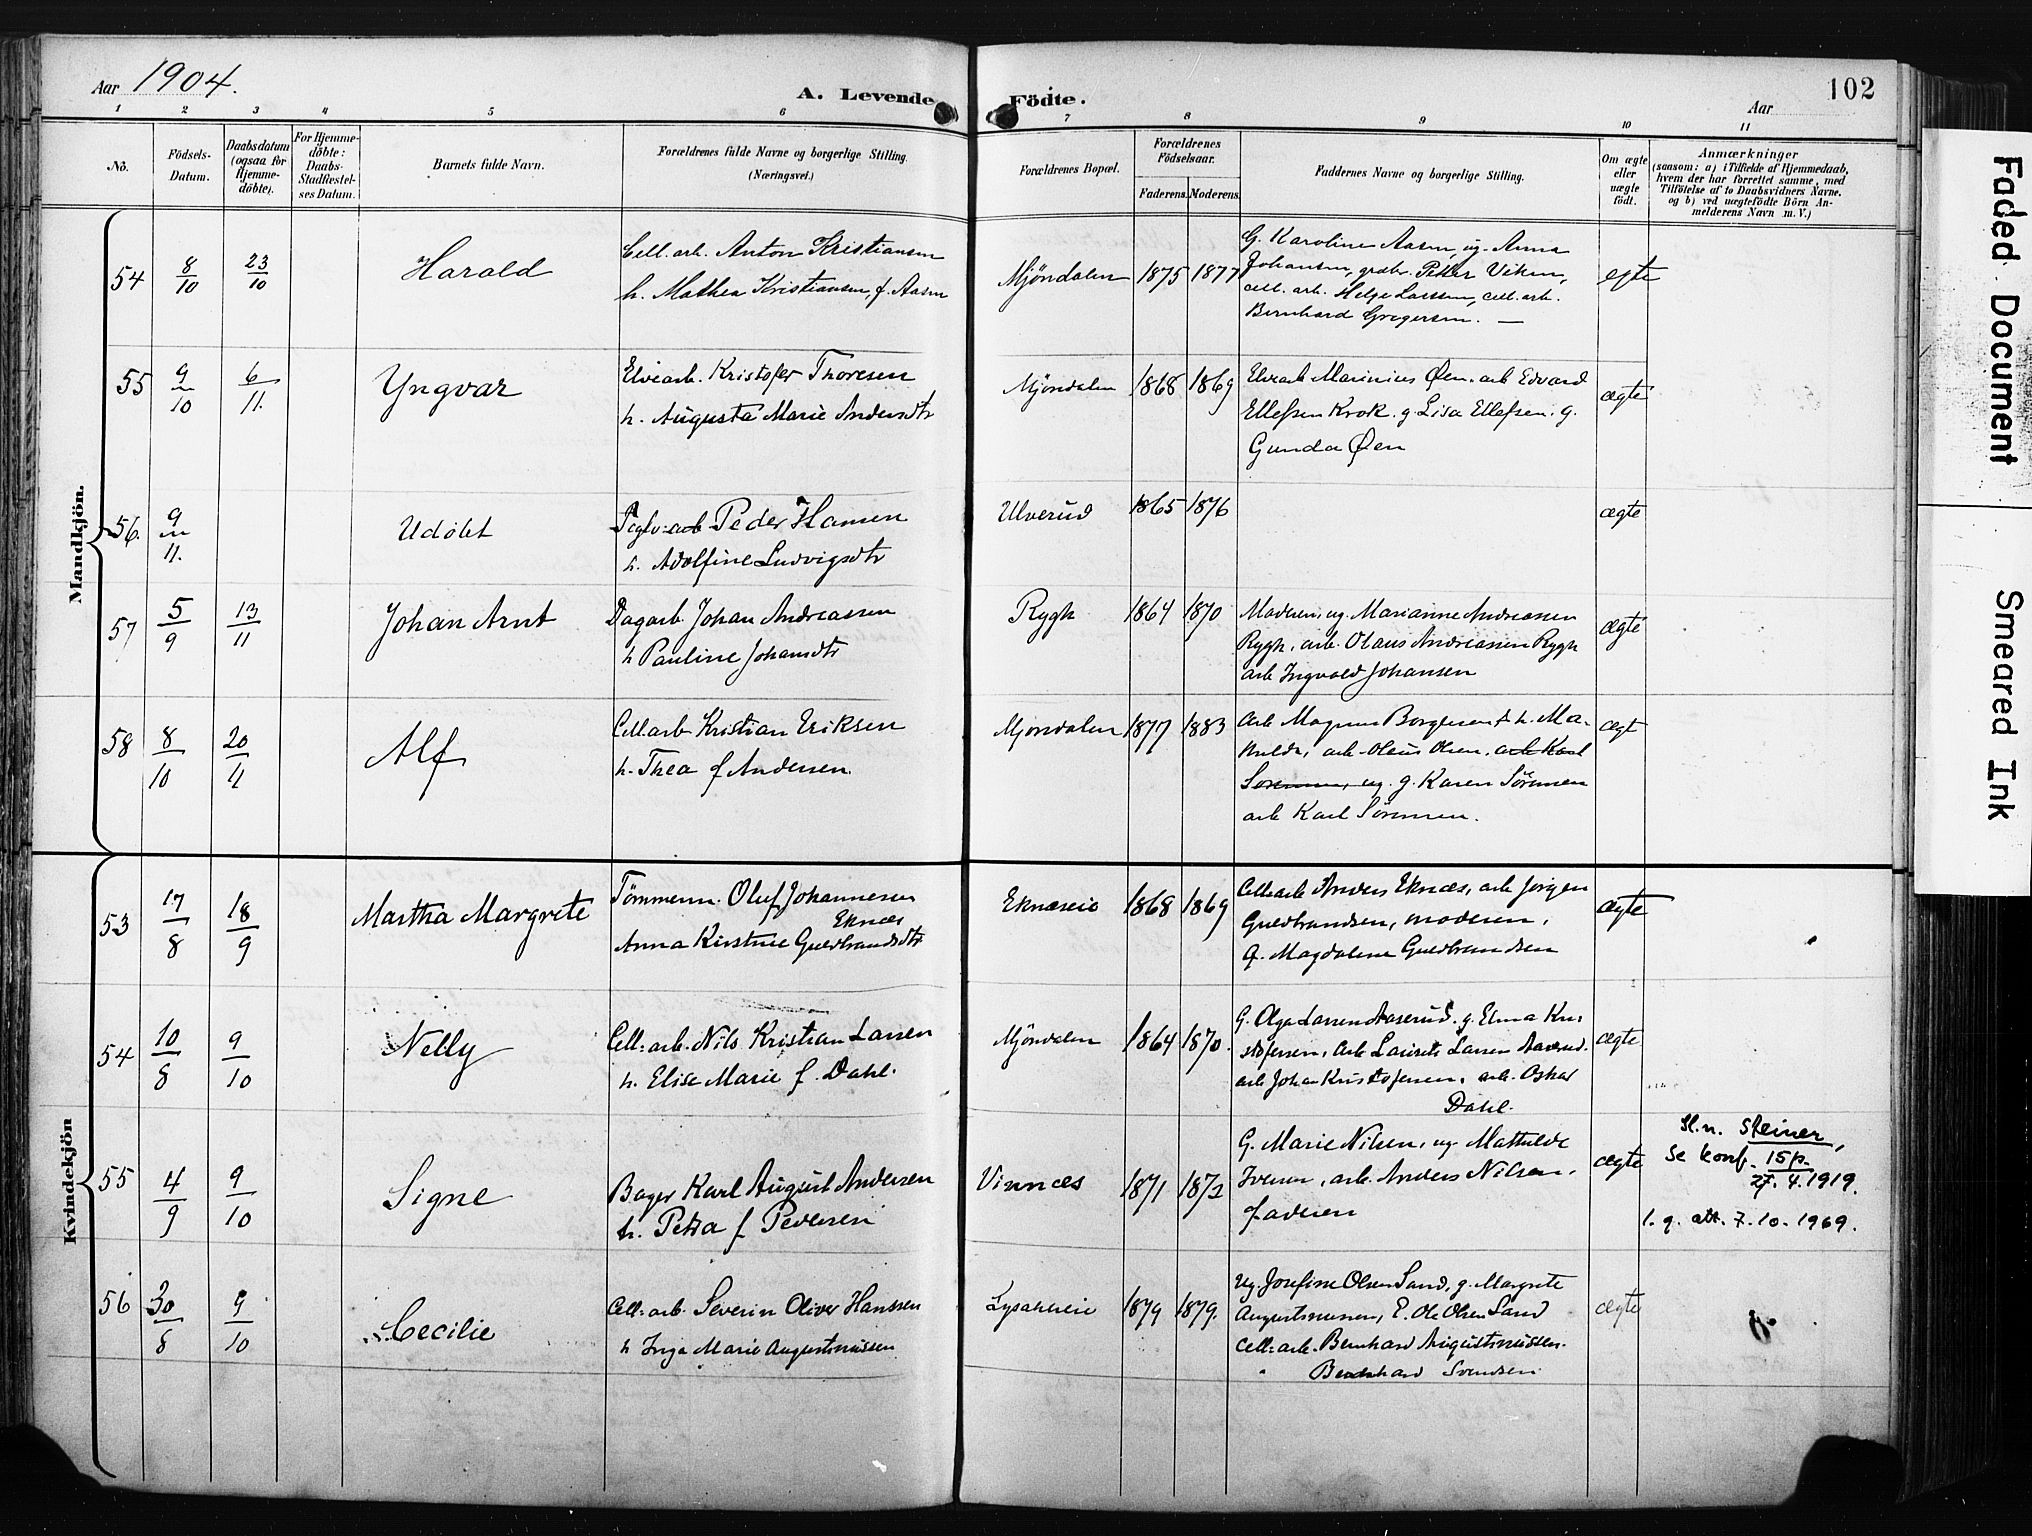 Aar 1904.
A. Levende Födte.
Aar
102
1 2 3 4 5 6 7 8 9 10 11
No.
Födsels-
Datum.
Daabsdatum
(ogsaa for
Hjemme-
döbte).
For Hjemme-
döbte:
Daabs-
Stadfæstel-
ses Datum.
Barnets fulde Navn.
Forældrenes fulde Navne og borgerlige Stilling.
(Næringsvei.)
Forældrenes Bopæl.
Forældrenes
Födselsaar.
Faderens. Moderens.
Faddernes Navne og borgerlige Stilling.
Om ægte
eller
uægte
födt.
Anmærkninger
(saasom: a) i Tilfælde af Hjemmedaab,
hvem der har forrettet samme, med
Tilföielse af to Daabsvidners Navne.
og b) ved uægtefödte Börn An-
melderens Navn m. V.)
Mandkjön.
54 8/10 23/10 Harald
Cell. arb. Anton Kristiansen
h. Mathea Kristiansen, f. Aasen
Mjøndalen 1875 1877
G. Karoline Aasen, ug. Anna
Johansen, gaabr. Petter Viken,
cell. arb. Helge Larssen, cell. arb.
Bernhard Gregersen. —
egte
55 9/10 6/11. Yngvar
Elvearb. Kristofer Thoresen
h. Augusta Marie Andersdtr
Mjøndalen 1868 1869
Elvearb Marinius Øen. arb Edvard
Ellefsen Krok. g Lisa Ellefsen. g.
Gunda Øen
ægte
56. 9/11. Udøbt
Peder Hansen
h. Adolfine Ludvigsdtr
Ulverud 1865 1876
ægte
57 5/9 13/11 Johan Arnt
Dagarb. Johan Andreassen
h Pauline Johansdtr
Rygh 1864 1870
Moderen, ug. Marianne Andreassen
Rygh, arb. Olaus Andreassen Rygh
arb Ingvald Johansen
ægte
58 8/10 20/11 Alf
Cell.arb Kristian Eriksen
h. Thea f Andersen.
Mjøndalen 1877 1883
arb Magnus Borgersen & h. Ma-
thilde, arb. Olaus Olsen, arb Karl
Sørensen, ug. g. Karen Sörensen
arb Karl Sørensen.
ægt
Kvindekjön
53 17/8 18/9 Martha Margrete
Tömmerm. Oluf Johannesen
Eknæs
Anna Kirstine Guldbrandsdtr
Eknæseie 1868 1869
Cell:arb Anders Eknæs, arb Jørgen
Guldbrandsen, moderen,
G. Magdalene Guldbrandsen
ægte
54 10/8 9/10 Nelly
Cell:arb. Nils Kristian Larsen
h. Elise Marie f. Dahl.
Mjøndalen 1864 1870.
G. Olga Larsen Aaserud. g. Elma Kri
stofersen, arb Laurits Larsen Aaserud.
arb Johan Kristofersen. arb. Oskar
Dahl.
ægte
55 4/9 9/10 Signe
Bager Karl August Andersen
h. Petra f Pedersen
Vinnæs 1871 1872
G. Marie Nilsen, ug Mathilde
Iversen, arb. Anders Nilsen.
faderen
ægte
Sl.n. Steiner,
Se konf. 15 p.
27. 4. 1919.
l. q. att. 7. 10. 1969.
56 30/8 9/10 Cecilie
Cell:arb. Severin Oliver Hanssen
h Inga Marie Augustinussen
Lysakereie 1879 1879.
Ug. Josefine Olsen Sand, g. Margrete
Augustinussen, E. Ole Olsen Sand
Cell:arb. Bernhard Augustinussen.
" Bernhard Svendsen
ægte
Faded Document
Smeared Ink